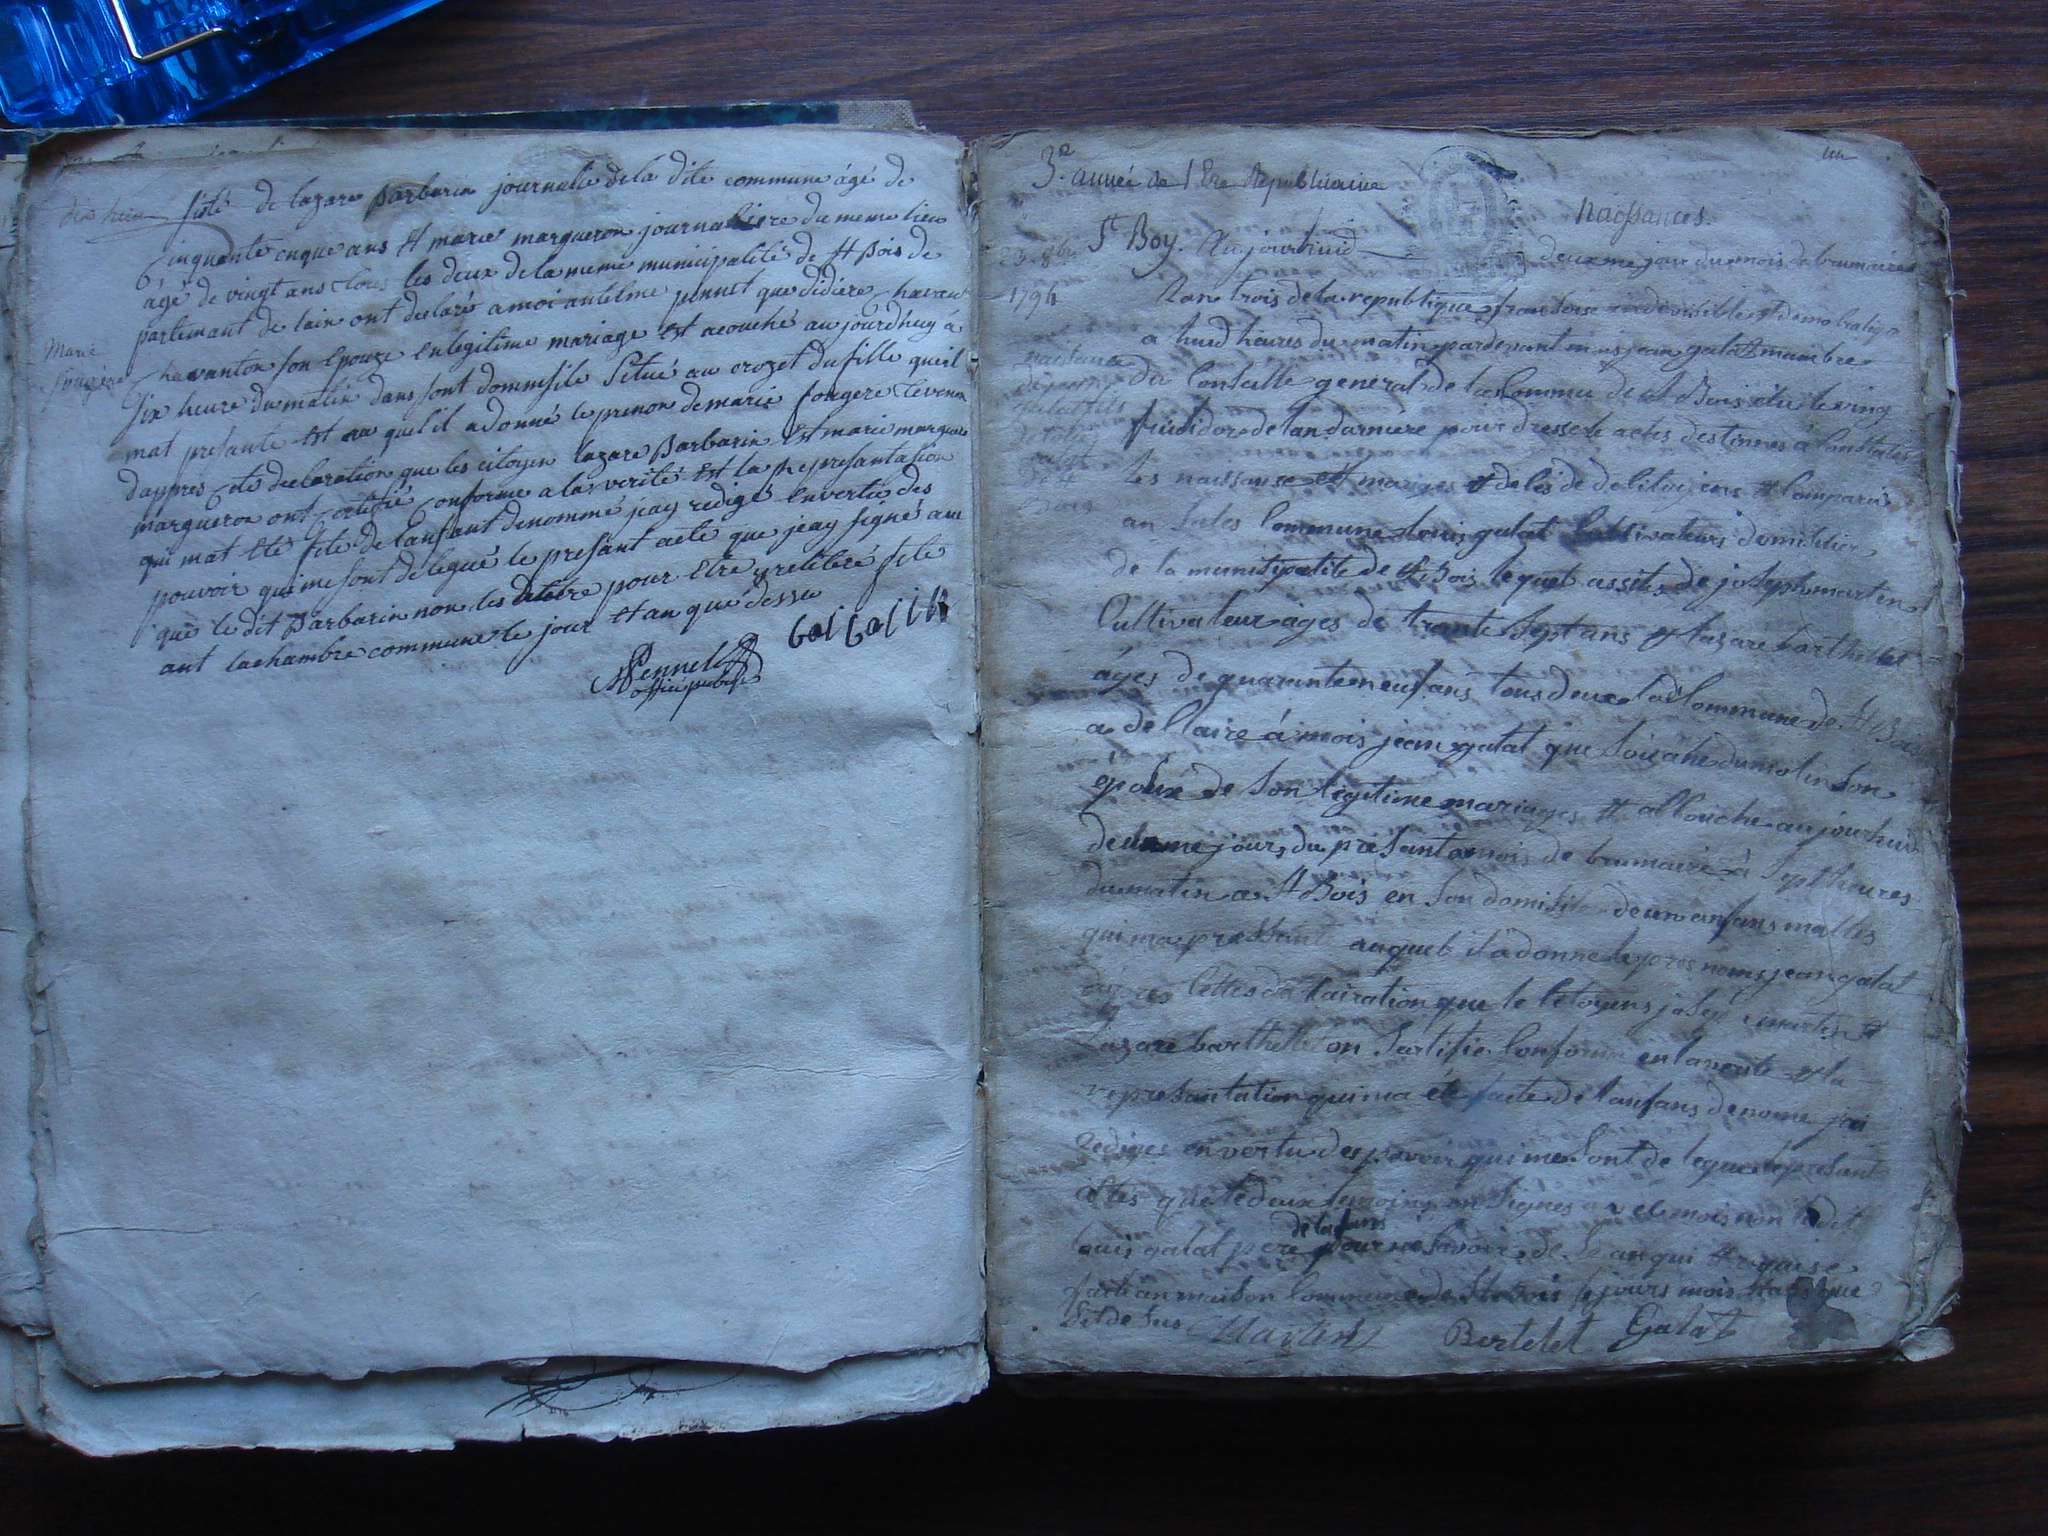 sisté de lazare Barbarin journalié de la dite commune âgé de
Cinquante cnque ans Et marie margueron journaliere du meme lieu
agé de vingt ans tous les deux de la meme municipalité de St Bois de
partemant de lain ont declaré a moi antelme pennet que didiere Chavan
Marie
fougere
Chavanton son Epouze en legitime mariage est acouché aujourdhuy à
six heure du matin dans sont dommisile Situé au crozet du fille queil
mat presante Est aa quel il a donné le prenon de marie fougere
dappres cete declaration que les citoyen lazare Barbarin Est marie margue
margueron ont certifié Conforme a la verité Est la Representasion
qui mat Eté fete de lanfant denommé jeay redigé En vertu des
pouvoir qui me sont delegué le presant acte que jeay signé au
que le dit Barbarin non les temoins pour Etre
ant la chambre commune le jour Et an que dessu
Pennet
officié public
3e année de l'Ere Republicaine
Naissances.
St Boy. Au jourhuid deuxme jour du mois de brumaires
1794
l'an trois de la republique francoise indivisible et democratiqe
a huid heures du matin pardevant mois jean galat mambre
naissance
de jean
galat fils
de louis
galat
de St
Bois
du Conseille general de la Commune de St Bois elu le ving
de lan darniere pour dresse le actes destinnes à Constates
les naissanse et mariges et deces de citoijens Et Comparu
an sales Commune louis galat Cultivateurs domicilier
de la municipalite de St Bois lequel assiste de joseph martin
Cultivateur ages de trante sept ans et lazare barthelet
âges de quarante neuf ans tous deux la Commune de St Bois
a declaire à mois jean galat que Suzane dumolin son
epouse de son legitime mariages Et accouche au jourhuid
deuxme jours du presant mois de brumaire à Sept heures
du matin a St Bois en son domisile de un anfans malles
qui ma pressante auquel il a donne le pres noms jean galat
dapres cettes declairation que le Citoyens joseph martin et
lazare barthelet on Sertifie Conforme en la verite et la
represantation qui ma éte faite de lanfans denome jai
rediges en vertu des povoir qui me sont delegue le presant
actes que le deux temoins on Signes avec mois non le dit
louis galat pere de lanfans pour ne savoir de
fait an maison Commune de St Bois le jours mois et ans que
Dit de sus Martin Bertelet Galat